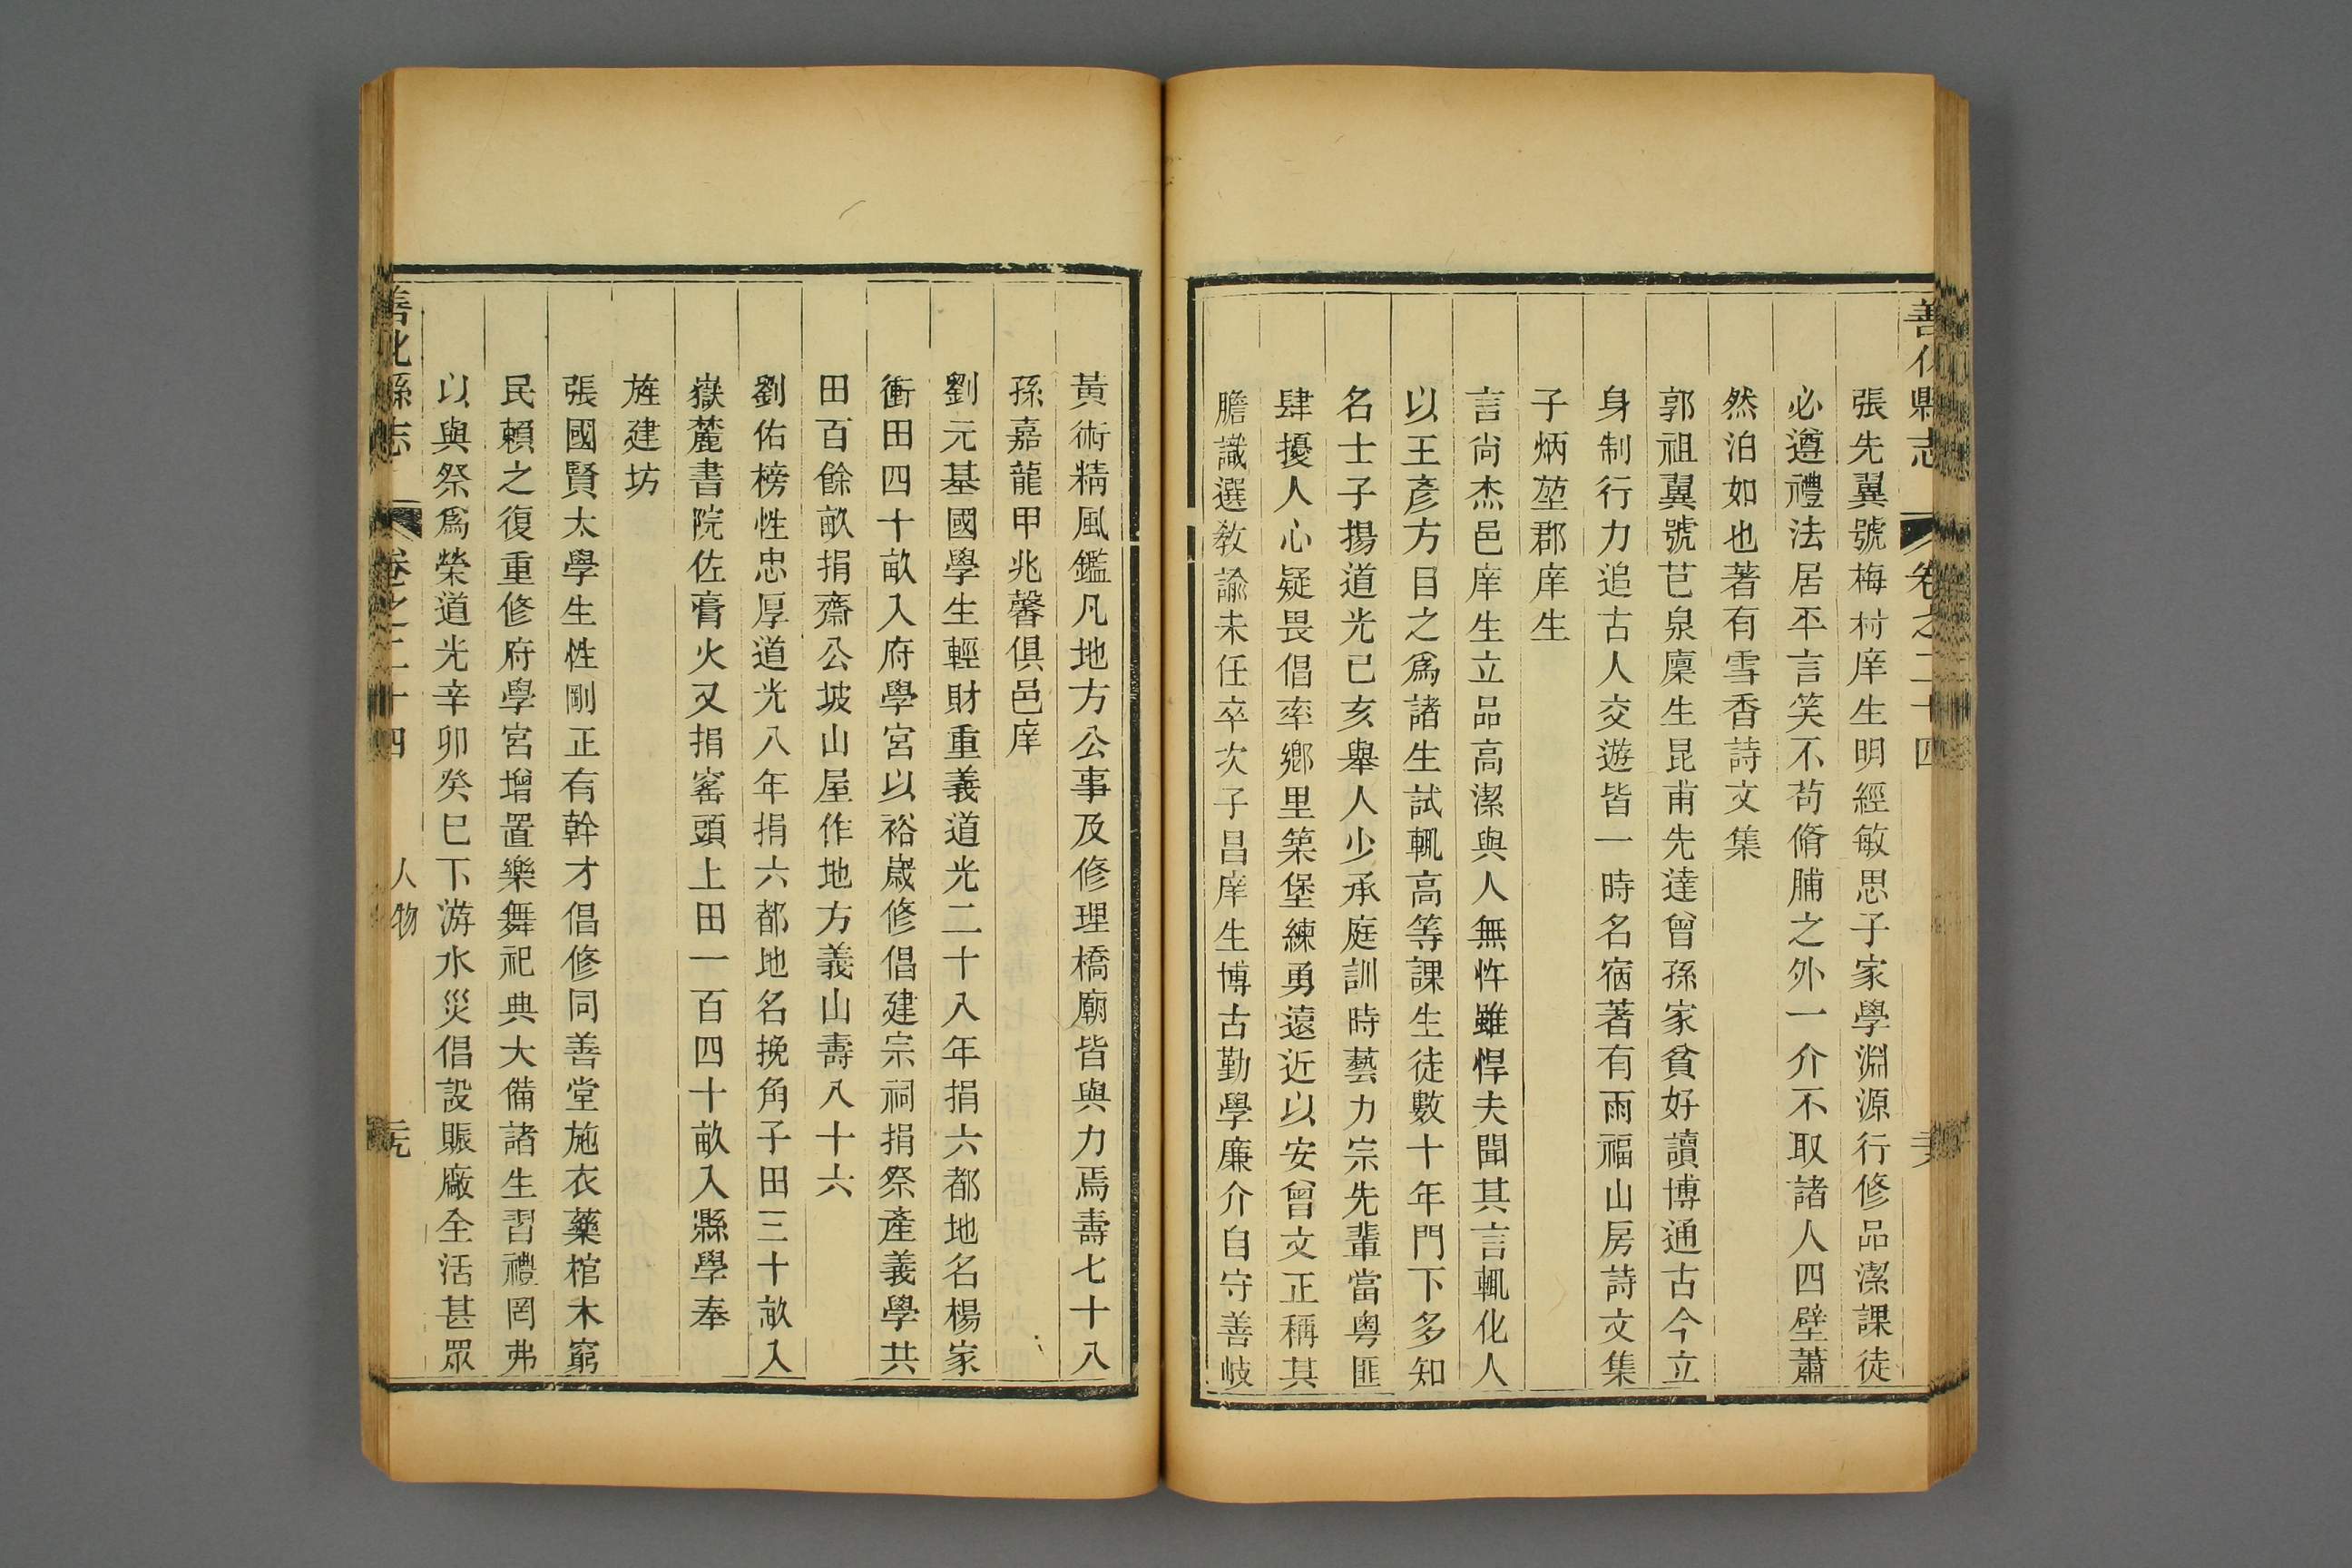 善化縣志 卷之二十四
張先翼號梅村庠生明經敏思子家學淵源行修品潔課徒
必遵禮法居平言笑不苟脩脯之外一介不取諸人四壁蕭
然泊如也著有雪香詩文集
郭祖翼號芑泉廩生昆甫先達曾孫家貧好讀博通古今立
身制行力追古人交遊皆一時名宿著有雨福山房詩文集
子炳堃郡庠生
言尚杰邑庠生立品高潔與人無忤雖悍夫聞其言輒化人
以王彥方目之為諸生試輒高等課生徒數十年門下多知
名士子揚道光已亥舉人少承庭訓時藝力宗先輩當粵匪
肆擾人心疑畏倡率鄉里築堡練勇遠近以安曾文正稱其
膽識選教諭未任卒次子昌庠生博古勤學廉介自守善岐
黃術精風鑑凡地方公事及修理橋廟皆與力焉壽七十八
孫嘉龍甲兆馨俱邑庠
劉元基國學生輕財重義道光二十八年捐六都地名楊家
衝田四十畝入府學宮以裕歲修倡建宗祠捐祭產義學共
田百餘畝捐齋公坡山屋作地方義山壽八十六
劉佑榜性忠厚道光八年捐六都地名挽角子田三十畝入
嶽麓書院佐膏火又捐窰頭上田一百四十畝入縣學奉
旌建坊
張國賢太學生性剛正有幹才倡修同善堂施衣藥棺木窮
民賴之復重修府學宮增置樂舞祀典大備諸生習禮罔弗
以與祭爲榮道光辛卯癸巳下游水災倡設賑廠全活甚眾
善化縣志 卷之二十四 人物